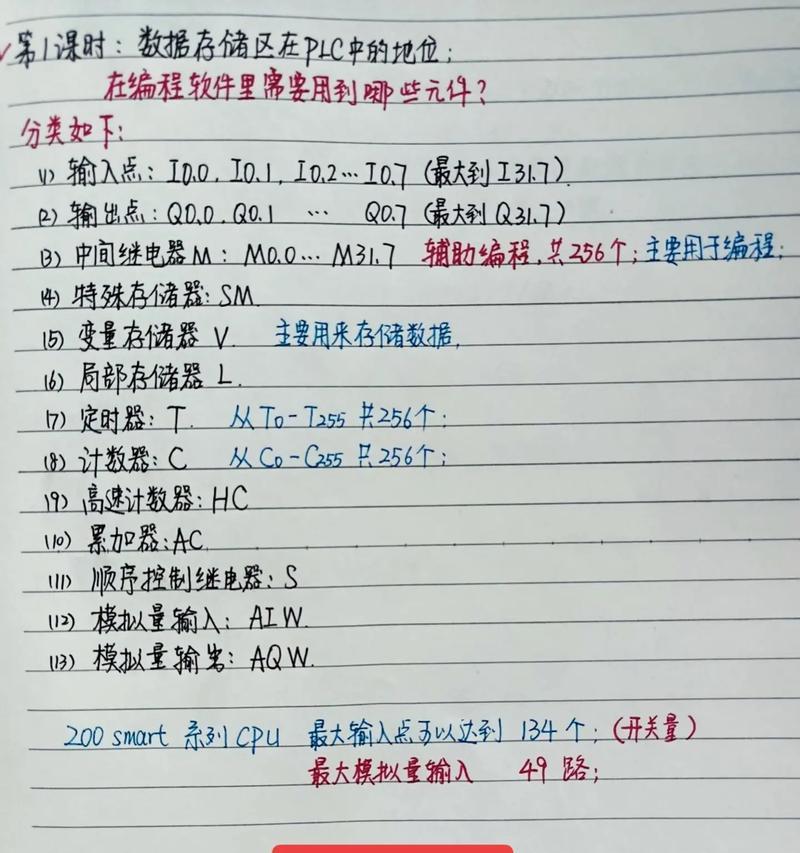 ✓第1课时：数据存储区在PLC中的地位；
在编程软件里需要用到哪些元件？
分类如下：
(1) 输入点：I0.0，I0.1，I0.2…I0.7（最大到I31.7）.
(2) 输出点：Q0.0，Q0.1 … Q0.7（最大到Q31.7）
(3) 中间继电器M：M0.0…M31.7 辅助编程，共256个；主要用于编程；
(4) 特殊存储器：SM.
(5) 变量存储器 V. 主要用来存储数据，
(6) 局部存储器 L.
(7) 定时器：T. 从T0-T255 共256个；
(8) 计数器：C 从C0-C255 只256个；
(9) 高速计数器：HC
(10) 累加器：AC.
(11) 顺序控制继电器：S
(12) 模拟量输入：AIW.
(13) 模拟量输出：AQW.
200 smart 系列CPU 最大输入点可以达到 134个；（开关量）
最大模拟量输入 49 路；